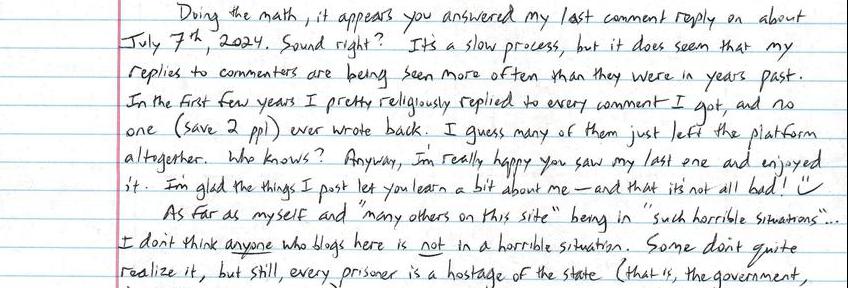 Doing the math, it appears you answered my last comment reply on about
July 7th, 2024. Sound right? It's a slow process, but it does seem that my
replies to commenters are being seen more often than they were in years past.
In the first few years I pretty religiously replied to every comment I got, and no
one (save 2 ppl) ever wrote back. I guess many of them just left the platform
altogether. Who knows? Anyway, I'm really happy you saw my last one and enjoyed
it. I'm glad the things I post let you learn a bit about me — and that it's not all bad!
As far as myself and "many others on this site" being in "such horrible situations"...
I don't think anyone who blogs here is not in a horrible situation. Some don't quite
realize it, but still, every prisoner is a hostage of the state (that is, the government,